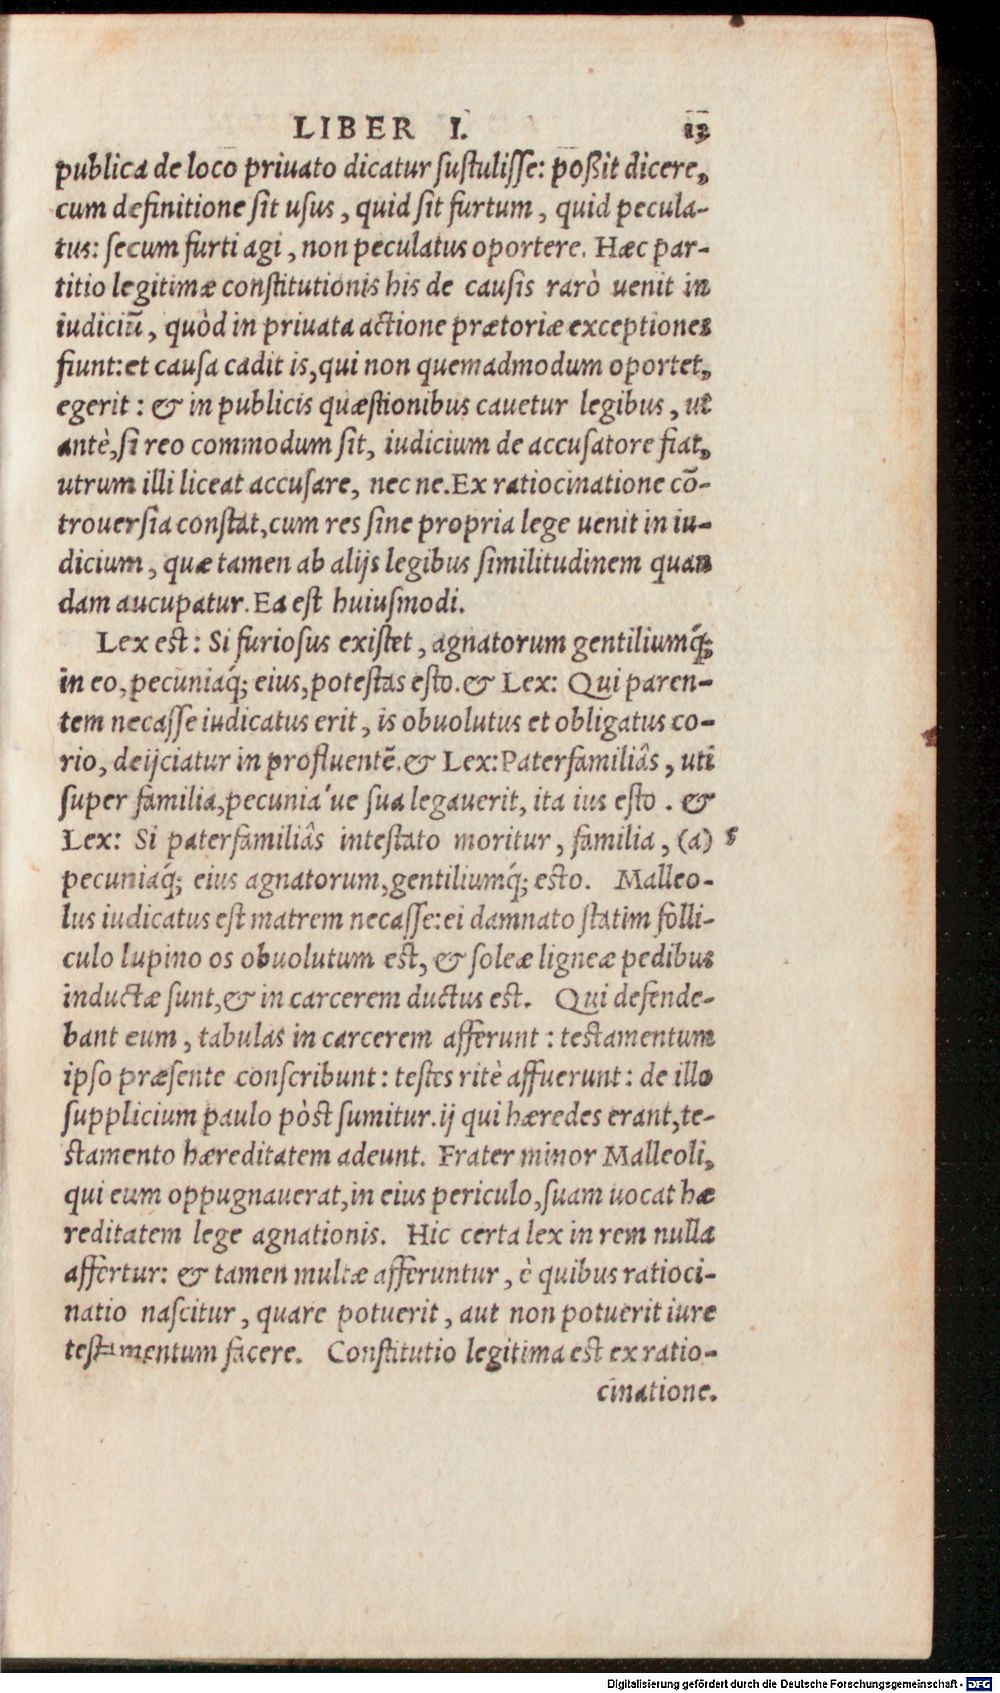 LIBER I. 13
publica de loco priuato dicatur sustulisse: poßit dicere,
cum definitione sit usus, quid sit furtum, quid pecula-
tus: secum furti agi, non peculatus oportere. Hæc par-
titio legitimæ constitutionis his de causis rarò uenit in
iudiciũ, quòd in priuata actione prætoriæ exceptiones
fiunt: et causa cadit is, qui non quemadmodum oportet,
egerit: & in publicis quæstionibus cauetur legibus, ut
antè, si reo commodum sit, iudicium de accusatore fiat,
utrum illi liceat accusare, nec ne. Ex ratiocinatione cõ-
trouersia constat, cum res sine propria lege uenit in iu-
dicium, quæ tamen ab alijs legibus similitudinem quan
dam aucupatur. Ea est huiusmodi.
Lex est: Si furiosus existet, agnatorum gentiliumq́;
in eo, pecuniaq́; eius, potestas esto. & Lex: Qui paren-
tem necasse iudicatus erit, is obuolutus et obligatus co-
rio, deijciatur in profluentẽ. & Lex: Paterfamiliâs, uti
super familia, pecunia 've sua legauerit, ita ius esto. &
Lex: Si paterfamiliâs intestato moritur, familia, (a) s
pecuniaq́; eius agnatorum, gentiliumq́; esto. Malleo-
lus iudicatus est matrem necasse: ei damnato statim folli-
culo lupino os obuolutum est, & soleæ ligneæ pedibus
inductæ sunt, & in carcerem ductus est. Qui defende-
bant eum, tabulas in carcerem afferunt: testamentum
ipso præsente conscribunt: testes ritè affuerunt: de illo
supplicium paulo pòst sumitur. ij qui hæredes erant, te-
stamento hæreditatem adeunt. Frater minor Malleoli,
qui eum oppugnauerat, in eius periculo, suam uocat hæ
reditatem lege agnationis. Hic certa lex in rem nulla
affertur: & tamen multæ afferuntur, è quibus ratioci-
natio nascitur, quare potuerit, aut non potuerit iure
testamentum facere. Constitutio legitima est ex ratio-
cinatione.
Digitalisierung gefördert durch die Deutsche Forschungsgemeinschaft - DFG